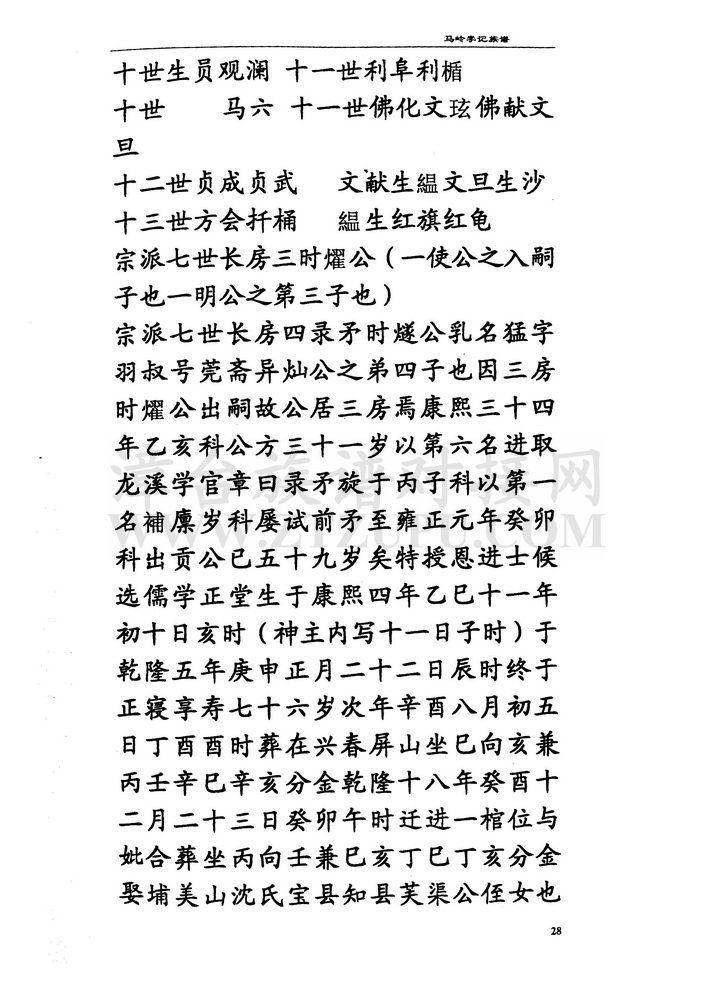 马岭李记族谱
十世生员观澜 十一世利阜利楯
十世 马六 十一世佛化文玹佛献文
旦
十二世贞成贞武 文献生緼文旦生沙
十三世方会扦桶 緼生红旗红龟
宗派七世长房三时燿公（一使公之入嗣
子也一明公之第三子也）
宗派七世长房四录矛时燧公乳名猛字
羽叔号莞斋异灿公之弟四子也因三房
时燿公出嗣故公居三房焉康熙三十四
年乙亥科公方三十一岁以第六名进取
龙溪学官章曰录矛旋于丙子科以第一
名補廪岁科屡试前矛至雍正元年癸卯
科出贡公已五十九岁矣特授恩进士候
选儒学正堂生于康熙四年乙巳十一年
初十日亥时（神主内写十一日子时）于
乾隆五年庚申正月二十二日辰时终于
正寝享寿七十六岁次年辛酉八月初五
日丁酉酉时葬在兴春屏山坐巳向亥兼
丙壬辛巳辛亥分金乾隆十八年癸酉十
二月二十三日癸卯午时迁进一棺位与
妣合葬坐丙向壬兼巳亥丁巳丁亥分金
娶埔美山沈氏宝县知县芙渠公侄女也
28
漳台族谱对接网
WWW.ZTZUPU.COM